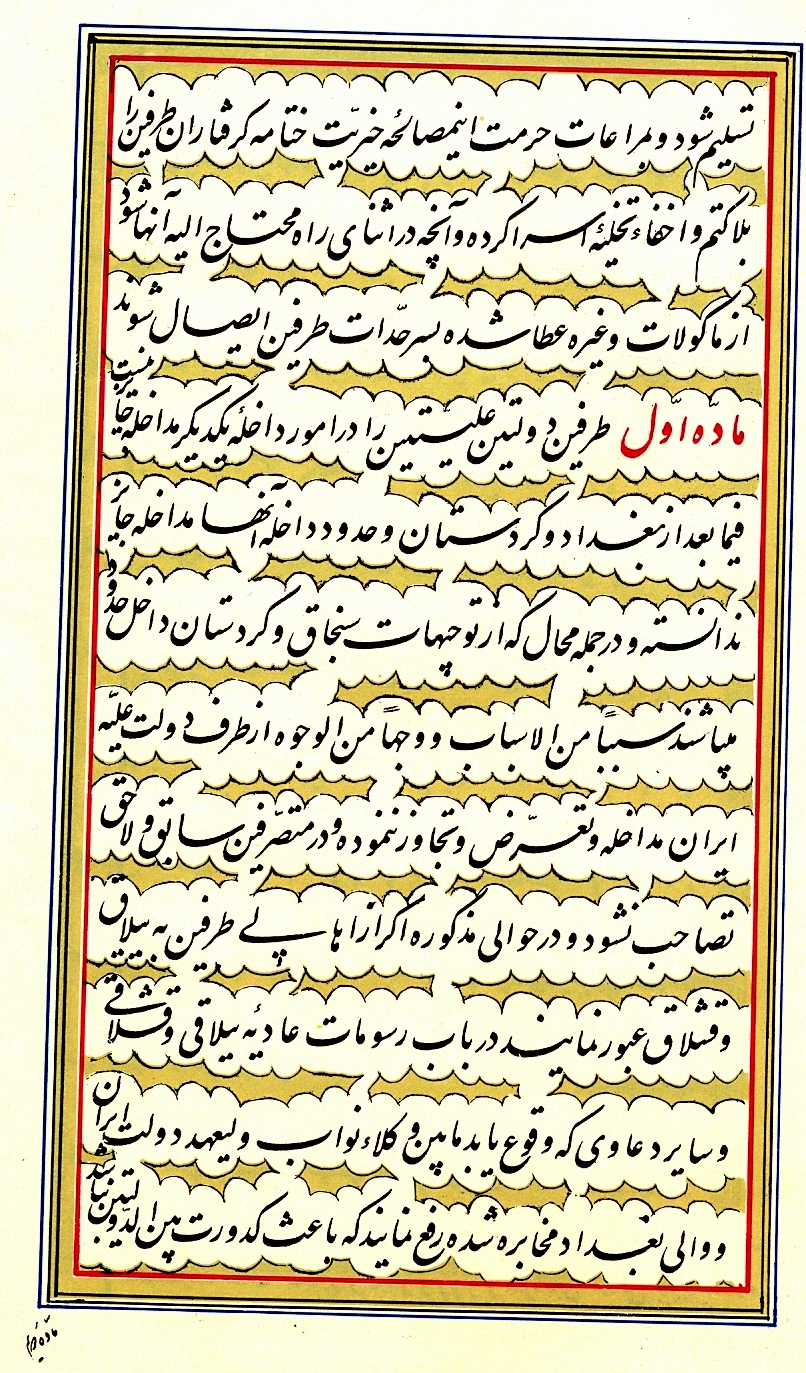 تسلیم شود و بمراعات حرمت اینمصالحهٔ خیریّت ختامه گرفتاران طرفین را
بلاکتم و اخفاء تخلیهٔ اسرا کرده و آنچه در اثنای راه محتاج الیه آنها شود
از ماکولات و غیره عطا شده بسرحدّات طرفین ایصال شوند
مادّه اوّل طرفین دولتین علیتین را در امور داخلهٔ یکدیگر مداخله جایز نیست
فیما بعد از بغداد و کردستان و حدود داخله آنها مداخله جایز
ندانسته و در جمله محال که از توجیهات سنجاق و کردستان داخل حدود
میباشند سبباً من الاسباب و وجهاً من الوجوه از طرف دولت علیّه
ایران مداخله و تعرّض و تجاوز ننموده و در متصرّفین سابق و لاحق
تصاحب نشود و در حوالی مذکوره اگر از اهالی طرفین به ییلاق
و قشلاق عبور نمایند در باب رسومات عادیّه ییلاقی و قشلاقی
و سایر دعاوی که وقوع یابد مابین وکلاء نواب ولیعهد دولت ایران
و والی بغداد مخابره شده رفع نمایند که باعث کدورت بین الدولتین نباشد
مادّه دویم